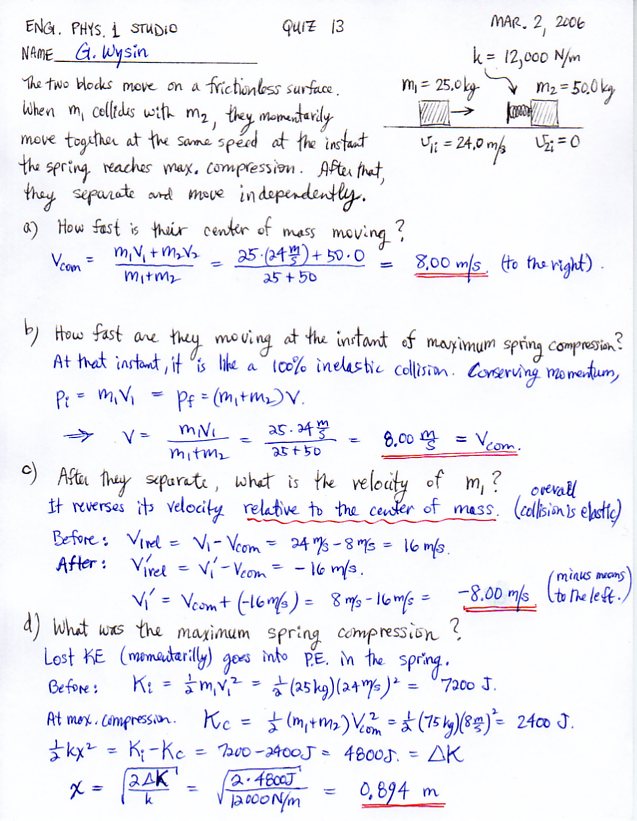 ENG. PHYS. 1 STUDIO QUIZ 13 MAR. 2, 2006
NAME G. Wysin
k = 12,000 N/m
The two blocks move on a frictionless surface. m₁ = 25.0 kg m₂ = 50.0 kg
When m₁ collides with m₂, they momentarily
move together at the same speed at the instant v₁ᵢ = 24.0 m/s v₂ᵢ = 0
the spring reaches max. compression. After that,
they separate and move independently.
a) How fast is their center of mass moving?
Vcom = (m₁V₁ + m₂V₂)/(m₁+m₂) = (25·(24 m/s) + 50·0)/(25+50) = 8.00 m/s. (to the right).
b) How fast are they moving at the instant of maximum spring compression?
At that instant, it is like a 100% inelastic collision. Conserving momentum,
Pᵢ = m₁V₁ = Pf = (m₁+m₂)V.
⇒ V = m₁V₁/(m₁+m₂) = (25·24 m/s)/(25+50) = 8.00 m/s = Vcom.
c) After they separate, what is the velocity of m₁?
It reverses its velocity relative to the center of mass. (overall collision is elastic)
Before: V₁rel = V₁ - Vcom = 24 m/s - 8 m/s = 16 m/s.
After: V₁'rel = V₁' - Vcom = -16 m/s.
V₁' = Vcom + (-16 m/s) = 8 m/s - 16 m/s = -8.00 m/s (minus means to the left.)
d) What was the maximum spring compression?
Lost KE (momentarilly) goes into P.E. in the spring.
Before: Kᵢ = ½m₁V₁² = ½(25 kg)(24 m/s)² = 7200 J.
At max. compression. Kc = ½(m₁+m₂)Vcom² = ½(75 kg)(8 m/s)² = 2400 J.
½kx² = Kᵢ - Kc = 7200 - 2400 J = 4800 J. = ΔK
x = √(2ΔK/k) = √(2·4800J/12000 N/m) = 0.894 m